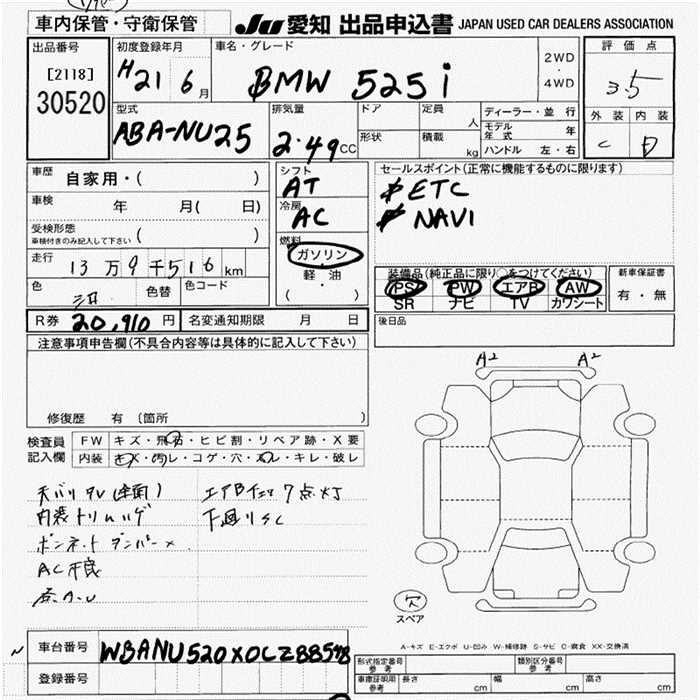 車内保管・守衛保管
JU 愛知 出品申込書 JAPAN USED CAR DEALERS ASSOCIATION
出品番号
[2118]
30520
初度登録年月
H21 6月
車名・グレード
BMW 525i
2WD
・
4WD
評価点
3.5
外装 内装
C D
型式
ABA-NU25
排気量
2.49CC
ドア
形状
定員
人
積載
kg
ディーラー・並行
モデル年式 年
ハンドル 左・右
車歴 自家用・( )
車検 年 月( 日)
受検形態
車検付きのみ記入して下さい ( )
走行 13万9千516km
色
色替
色コード
シフト
AT
冷房
AC
燃料
ガソリン
軽・油
( ・ )
セールスポイント(正常に機能するものに限ります)
ETC
NAVI
装備品(純正品に限り○をつけてください)
PS PW エアB AW
SR ナビ TV カワシート
新車保証書
有・無
R券 20,910円
名変通知期限 月 日
後日品
注意事項申告欄(不具合内容等は具体的に記入して下さい)
修復歴 有 (箇所 )
検査員
記入欄
FW キズ・飛石・ヒビ割・リペア跡・X要
内装 キズ・汚レ・コゲ・穴・スレ・キレ・破レ
内装トリムハゲ
エアBチェック点灯
ボンネットダンパー×
下廻りSC
AC不良
A2 A2
欠
スペア
A-キズ E-エクボ U-凹み W-補修跡 S-サビ C-腐食 XX-交換済
車台番号 WBANU520X0CZ88598
登録番号
形式指定番号
参考
類別区分番号
参考
車庫証明用
参考
長さ cm
幅 cm
高さ cm